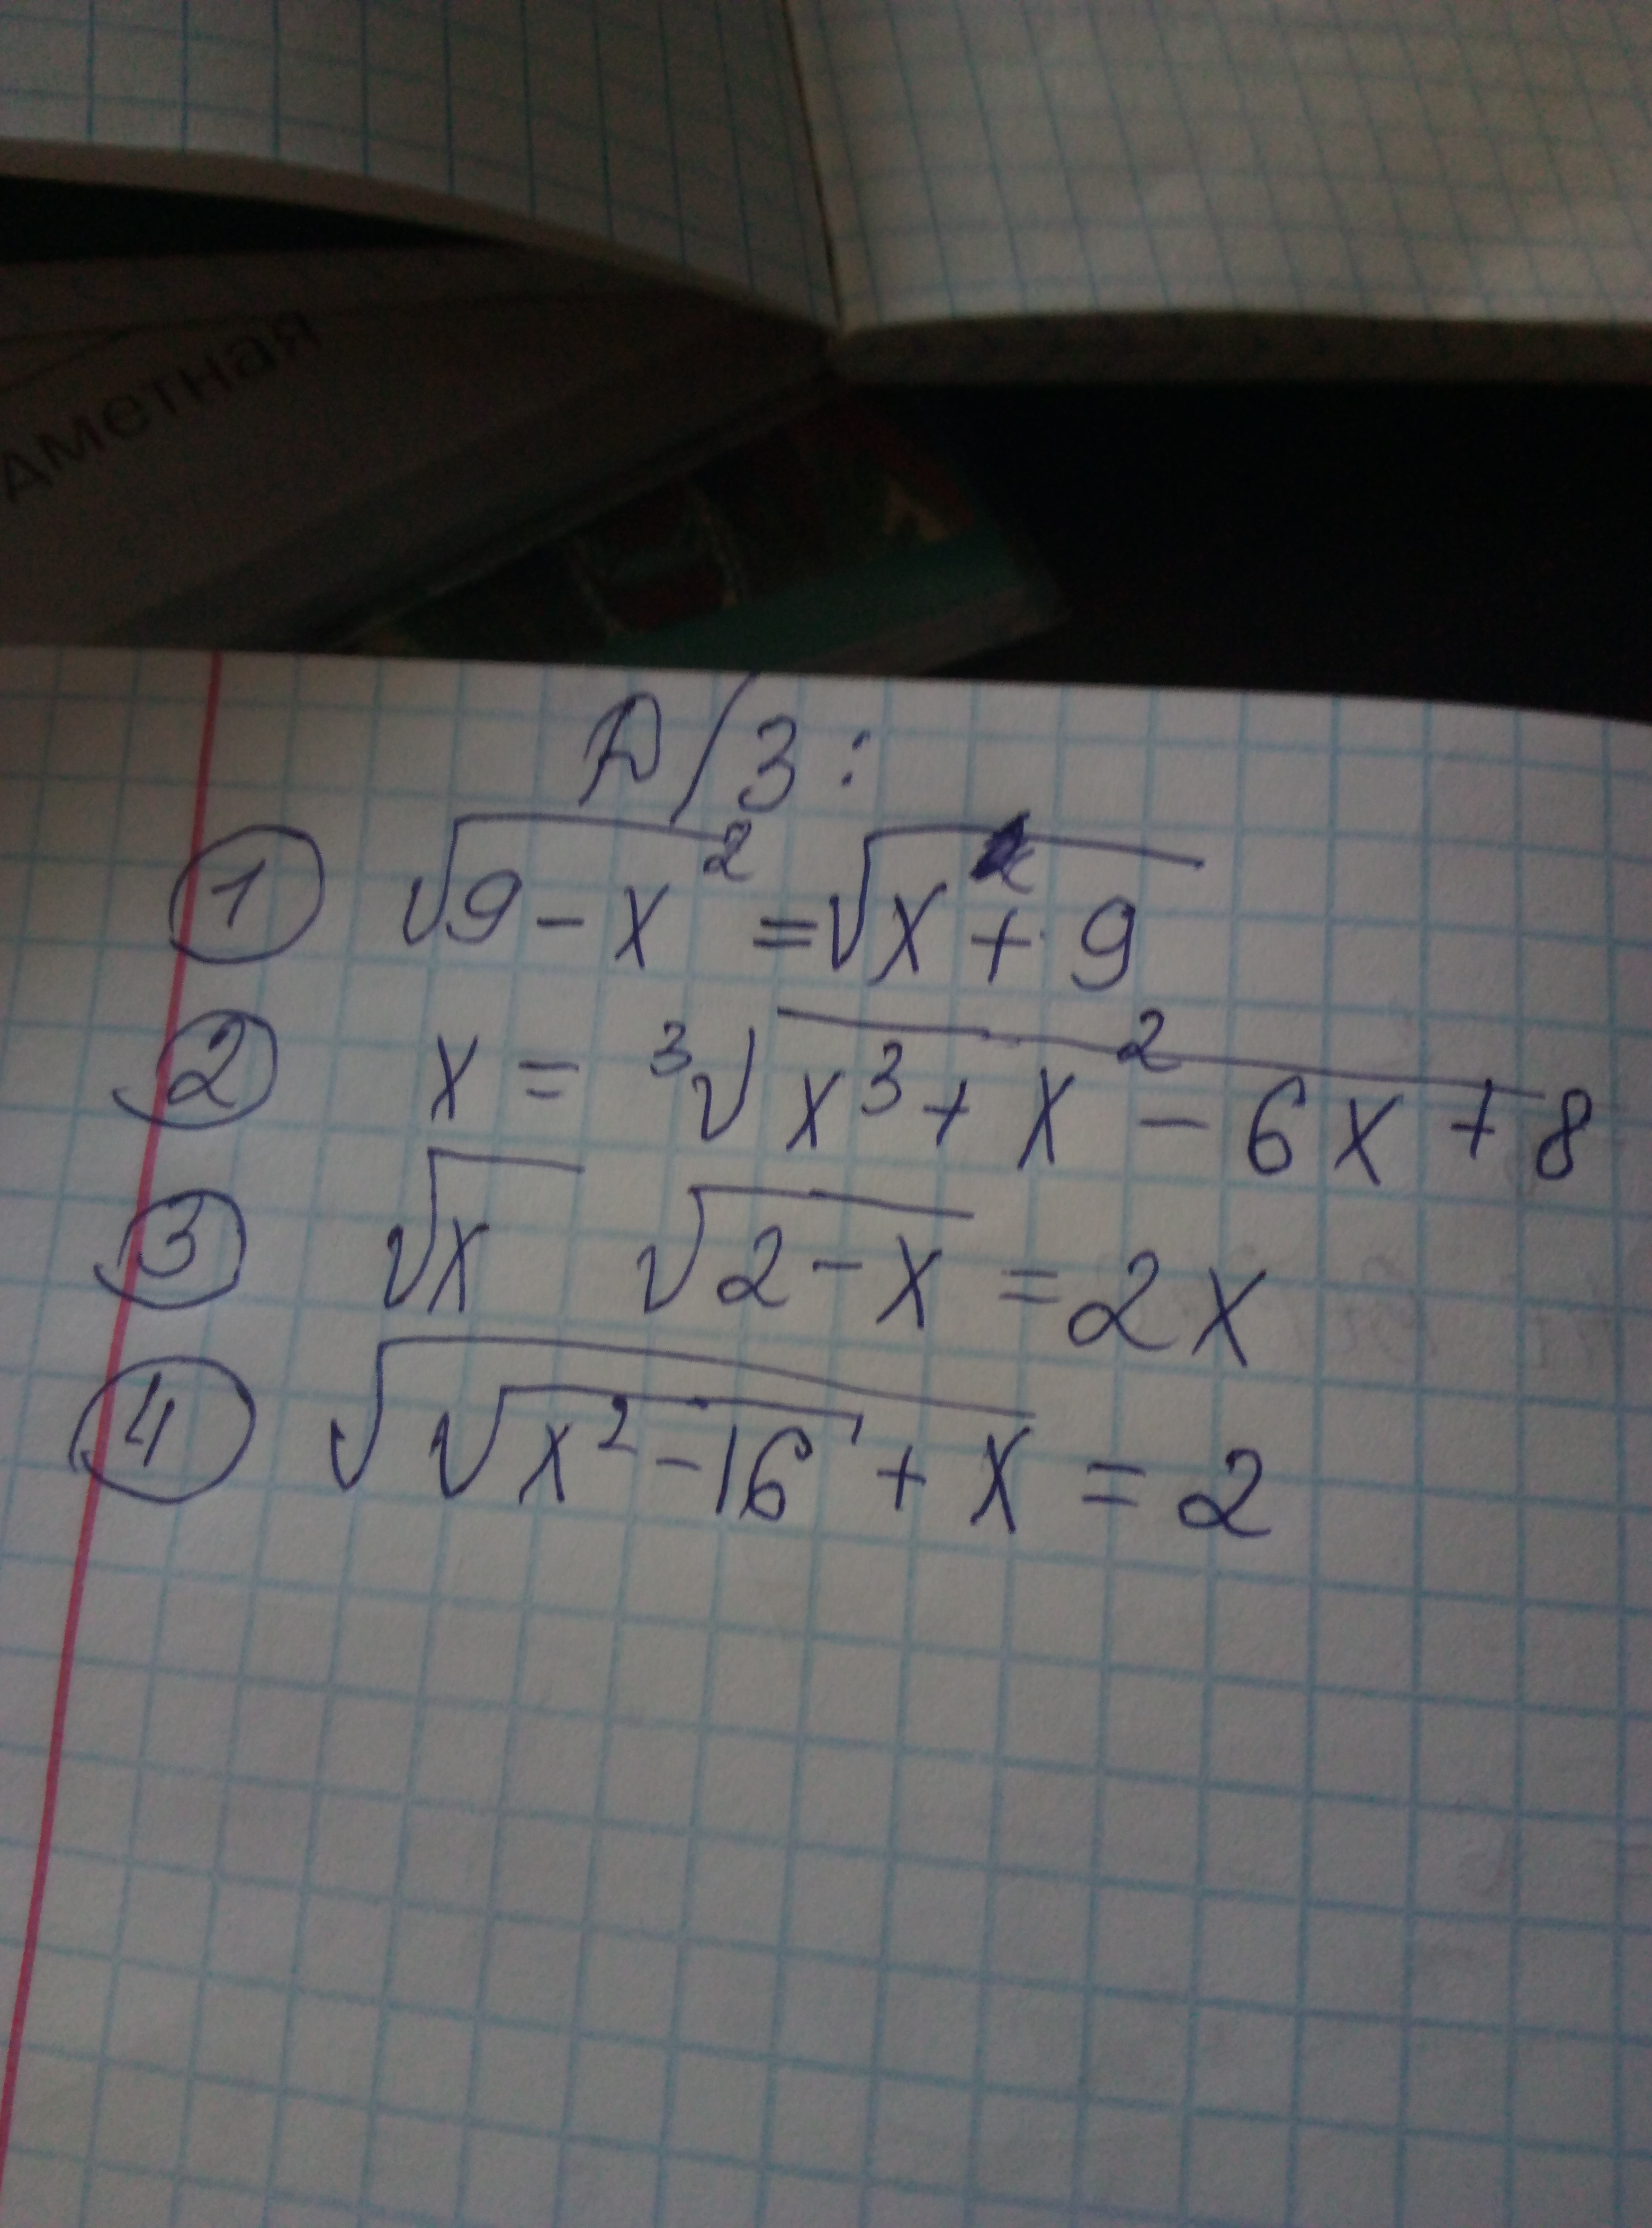 аметная
Д/З:
① √(9-x²) = √(x+9)
② x = ³√(x³+x²-6x+8)
③ √x √(2-x) = 2x
④ √(√(x²-16)+x) = 2